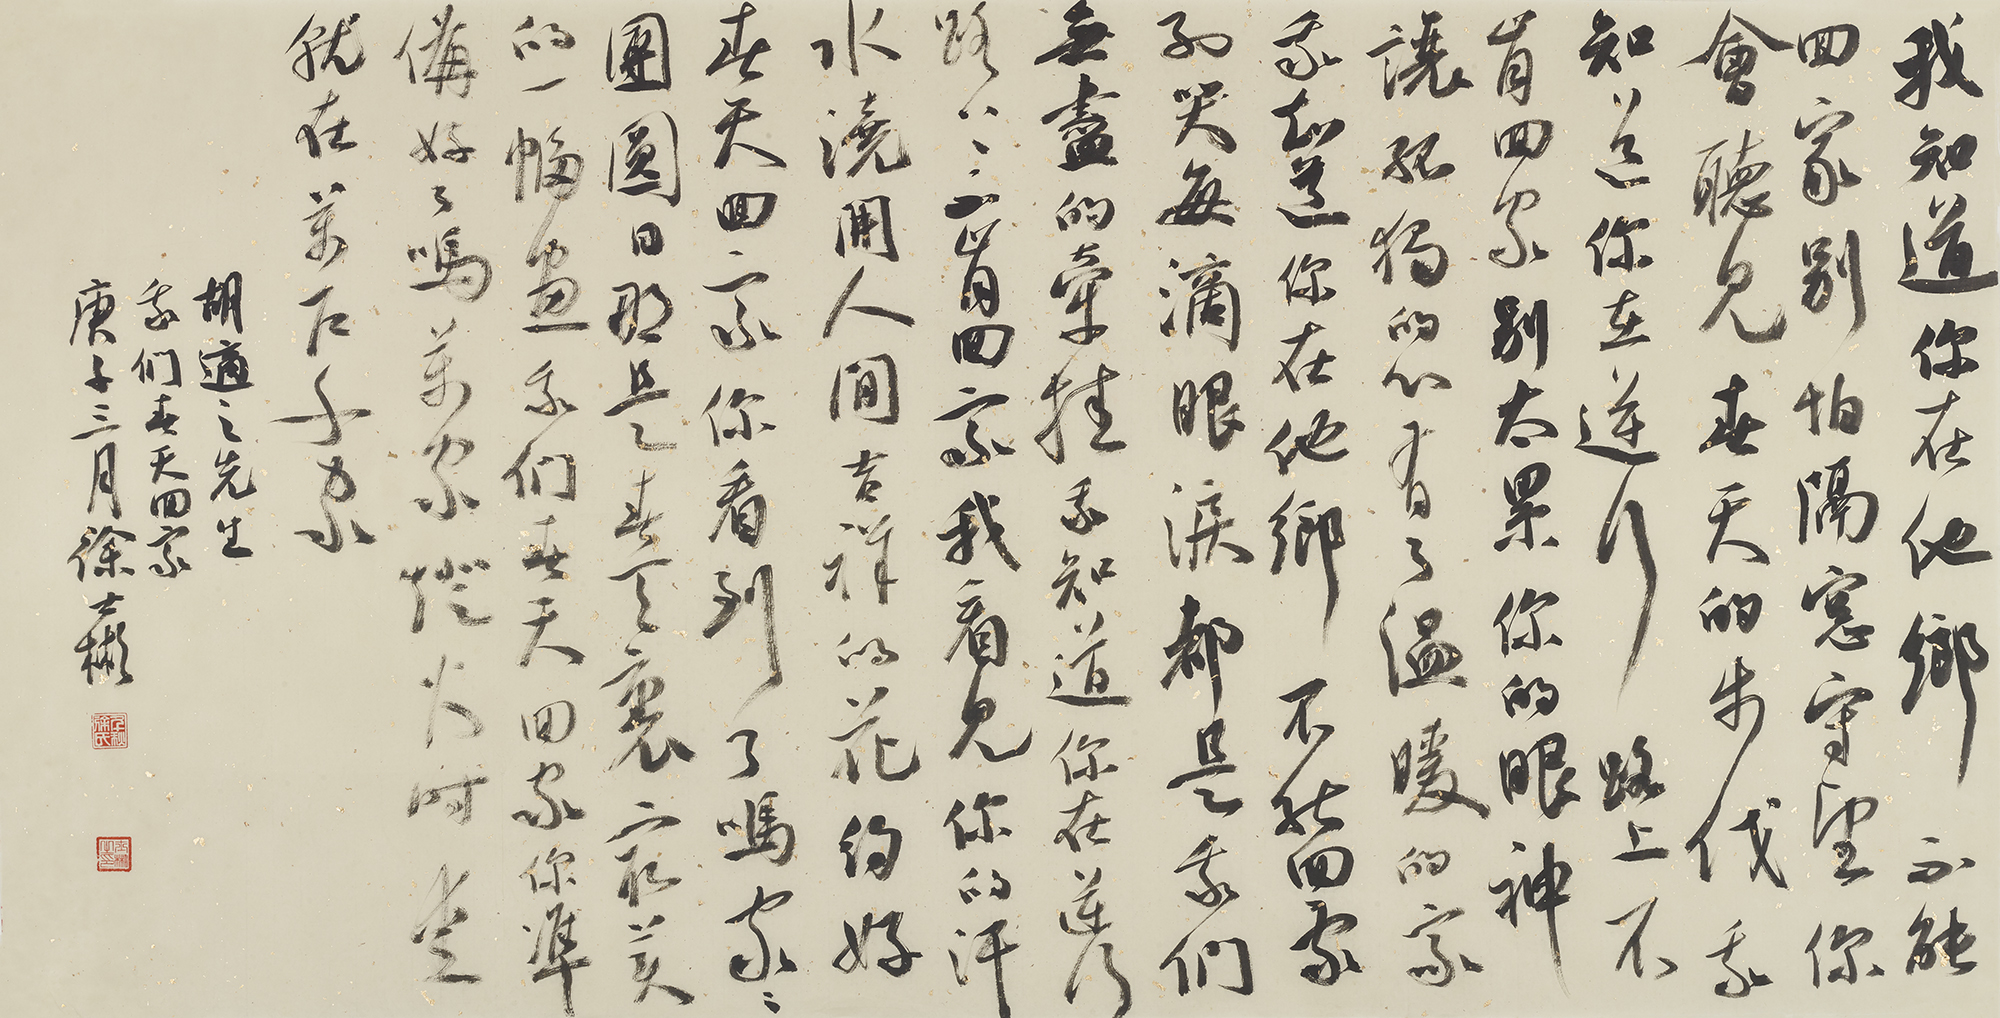 我知道你在他鄉不能
回家別怕隔窓守望你
會聽見春天的步伐我
知道你在逆行路上不
肯回家別太累你的眼神
讓孤獨的心有了溫暖的家
我知道你在他鄉不能回家
別哭每滴眼淚都是我们
無盡的牽挂我知道你在逆行
路上不肯回家我看見你的汗
水澆開人间吉祥的花約好
春天回家你看到了嗎家家
團圓日那是春天裏最美
的一幅畫我们春天回家你準
備好了嗎萬家燈火時爱
就在萬户千家
胡適之先生
我们春天回家
庚子三月徐士彬